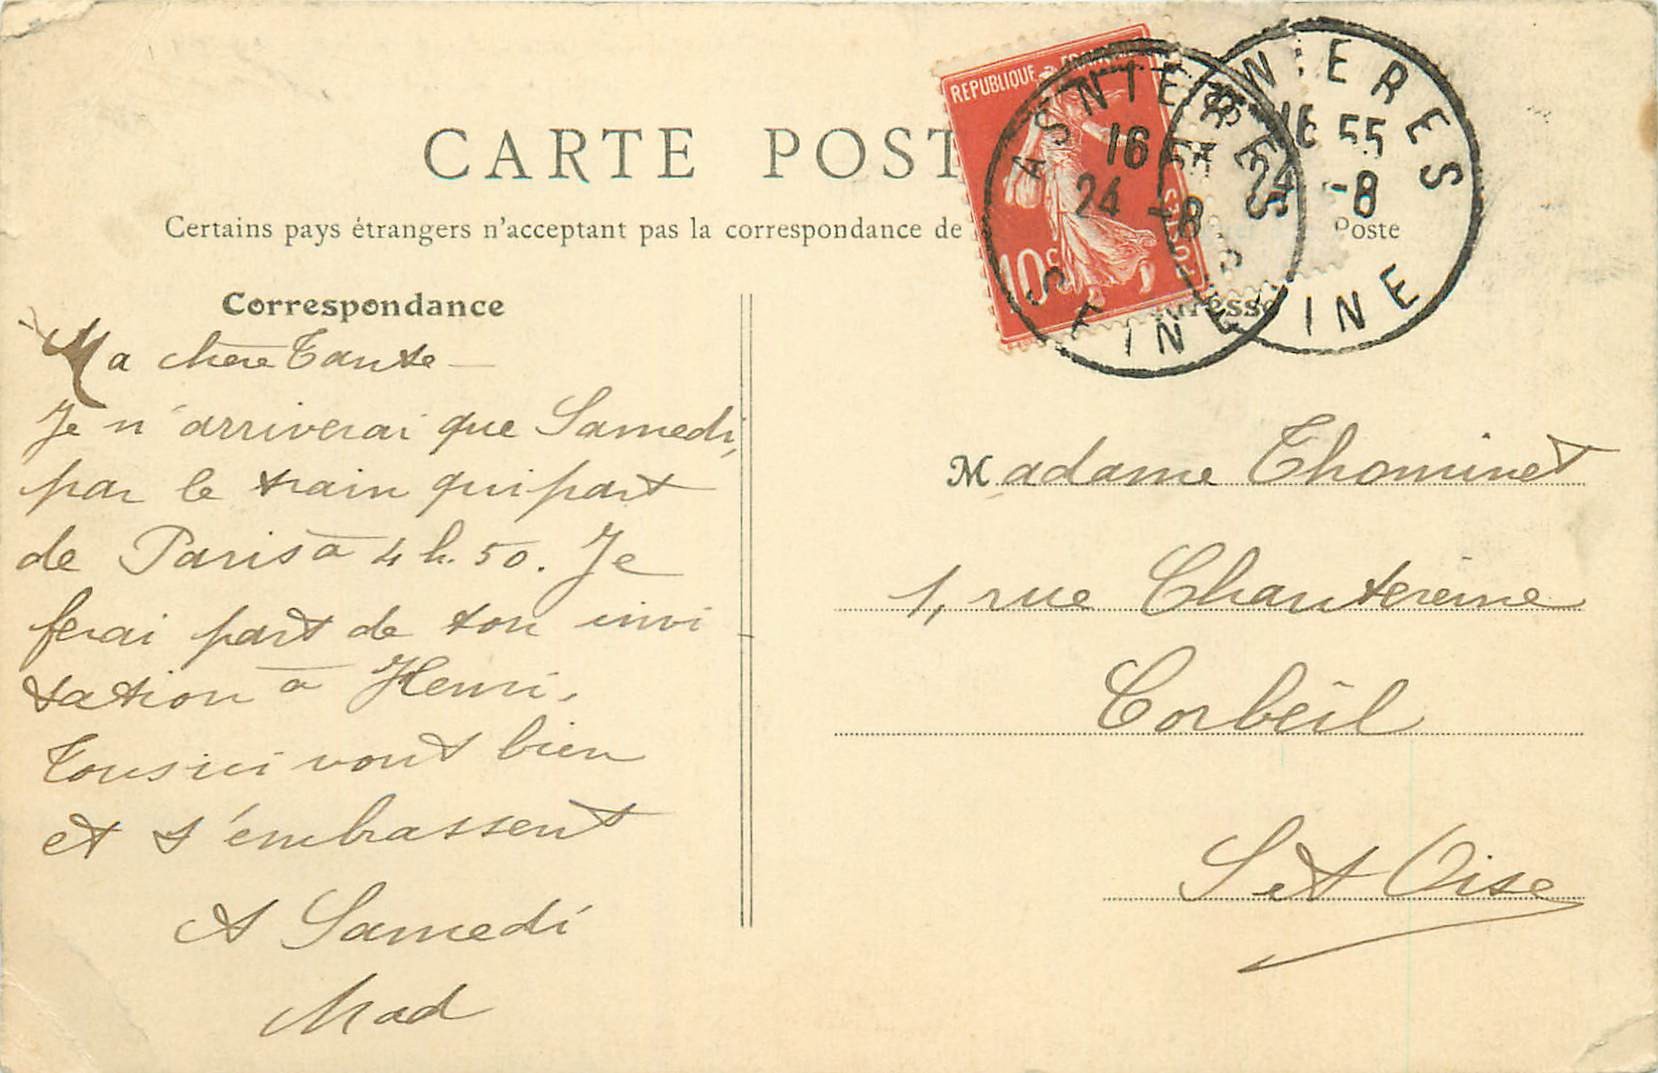 CARTE POST
Certains pays étrangers n'acceptant pas la correspondance de
Poste
REPUBLIQUE FRANÇAISE
POSTES
10c
ASNIERES
16 55
24 -8
SEINE
NIERES
16 55
24 -8
INE
Correspondance
Ma chère Tante —
Je n'arriverai que Samedi,
par le train qui part
de Paris à 4 h. 50. Je
ferai part de ton invi
tation à Henri.
Tous ici vont bien
et t'embrassent
A Samedi
Mad
Madame Thominet
1, rue Chantereine
Corbeil
S et Oise